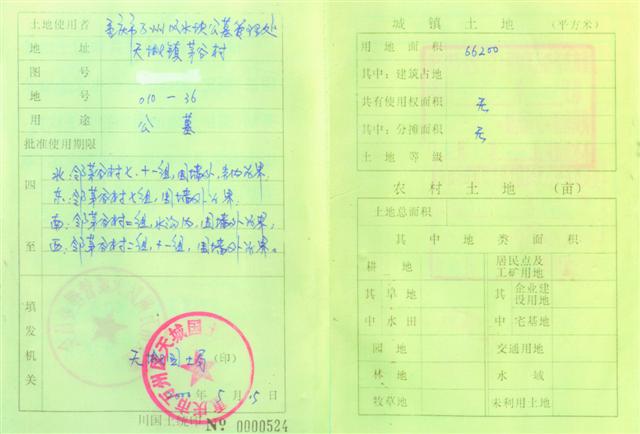 土地使用者 重庆市万州区水坝公墓管理处
地 址 天城镇茅谷村
图 号
地 号 010-36
用 途 公墓
批准使用期限
四至
北:邻茅谷村七、十一组,围墙外为界
东:邻茅谷村七组,围墙外为界
南:邻茅谷村二组,水沟内,围墙外为界;
西:邻茅谷村二组,十一组,围墙外为界。
填发机关
天城国土局 (印)
2000 年 5 月 15 日
重庆市万州区天城国土
川国土统印 Nº 0000524
城镇土地 (平方米)
用地面积 66200
其中:建筑占地
共有使用权面积 无
其中:分摊面积 无
土地等级
农村土地 (亩)
土地总面积
其中地类面积
耕 地 居民点及工矿用地
其旱地 其 企业建设用地
中水田 中 宅基地
园 地 交通用地
林 地 水 域
牧草地 未利用土地